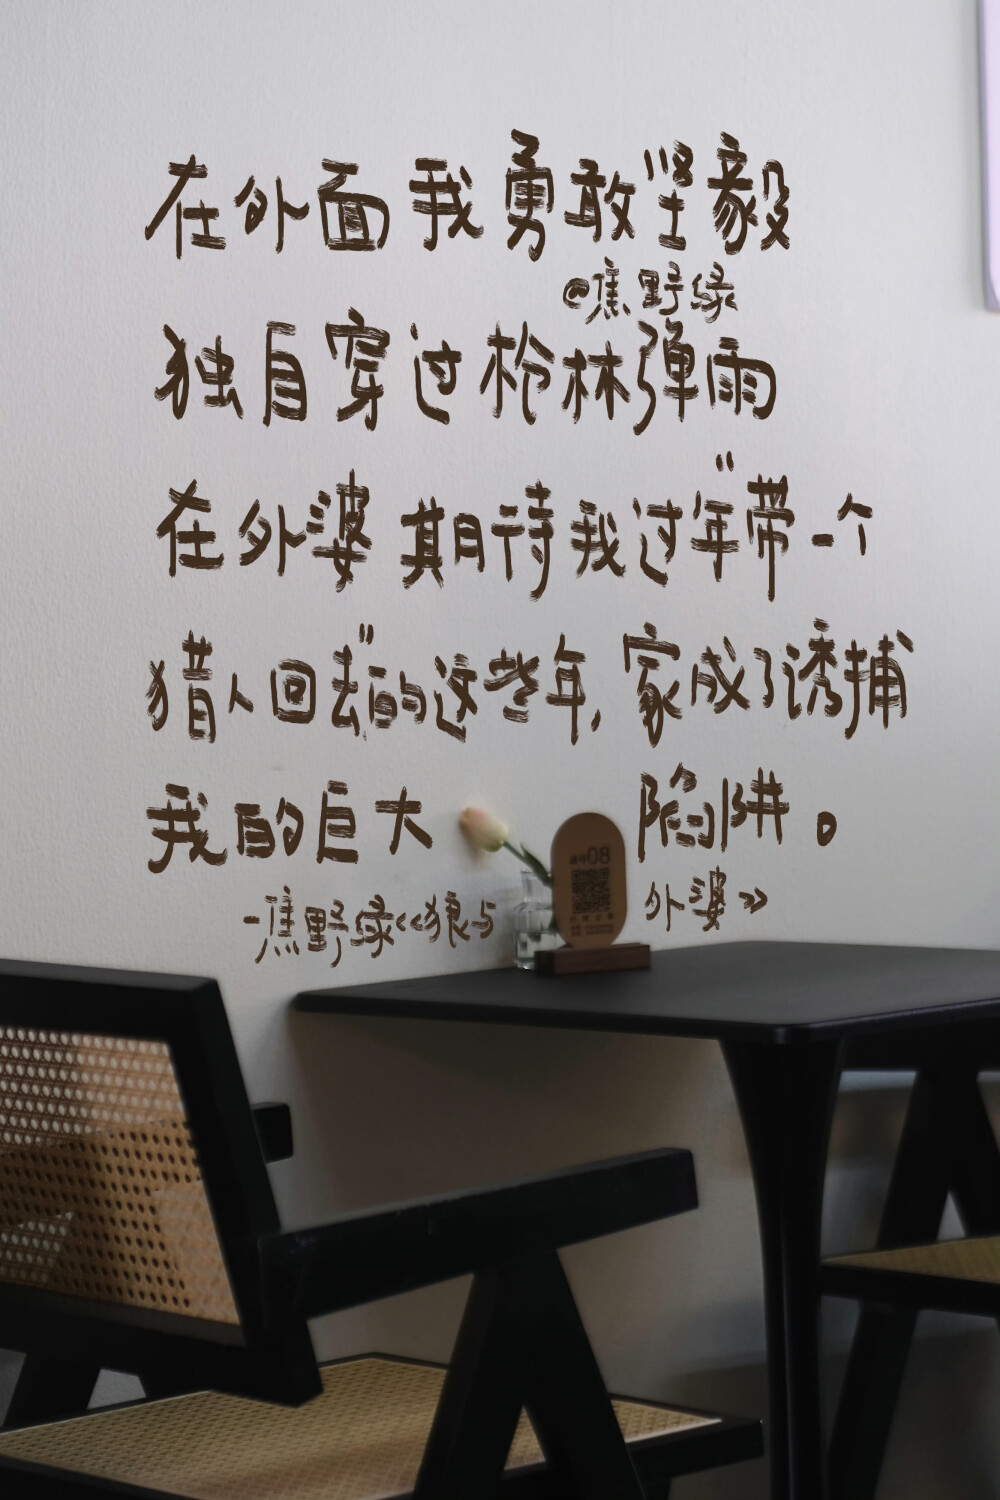 在外面我勇敢坚毅
@焦野绿
独自穿过枪林弹雨
在外婆期待我过"年带一个
猎人回去"的这些年,家成了诱捕
我的巨大陷阱。
-焦野绿<<狼与外婆>>
08